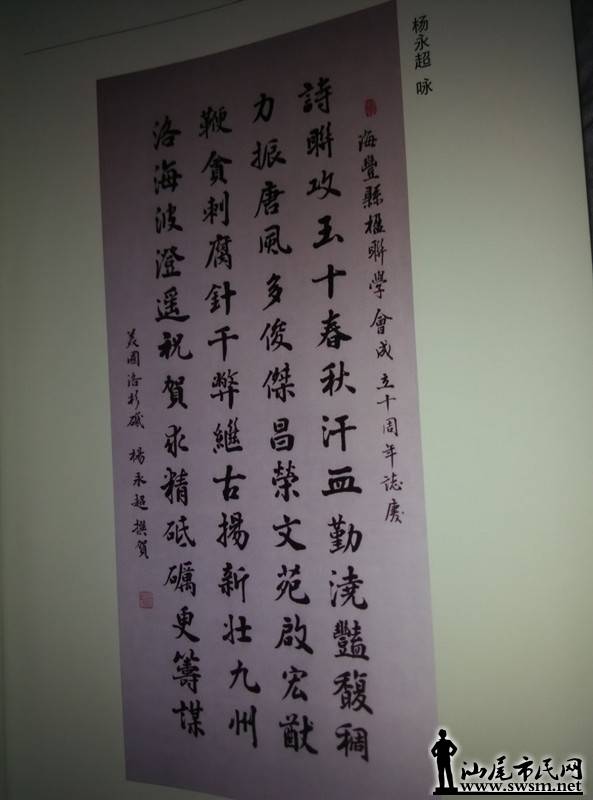 杨永超 咏
海豐縣楹聯學會成立十周年誌慶
詩聯攻玉十春秋汗血勤澆豔馥稠
力振唐風多俊傑昌榮文苑啟宏猷
鞭貪刺腐針干弊繼古揚新壯九州
洛海波澄遥祝賀求精砥礪更籌謀
美國洛杉磯 楊永超撰賀
汕尾市民网
www.swsm.net